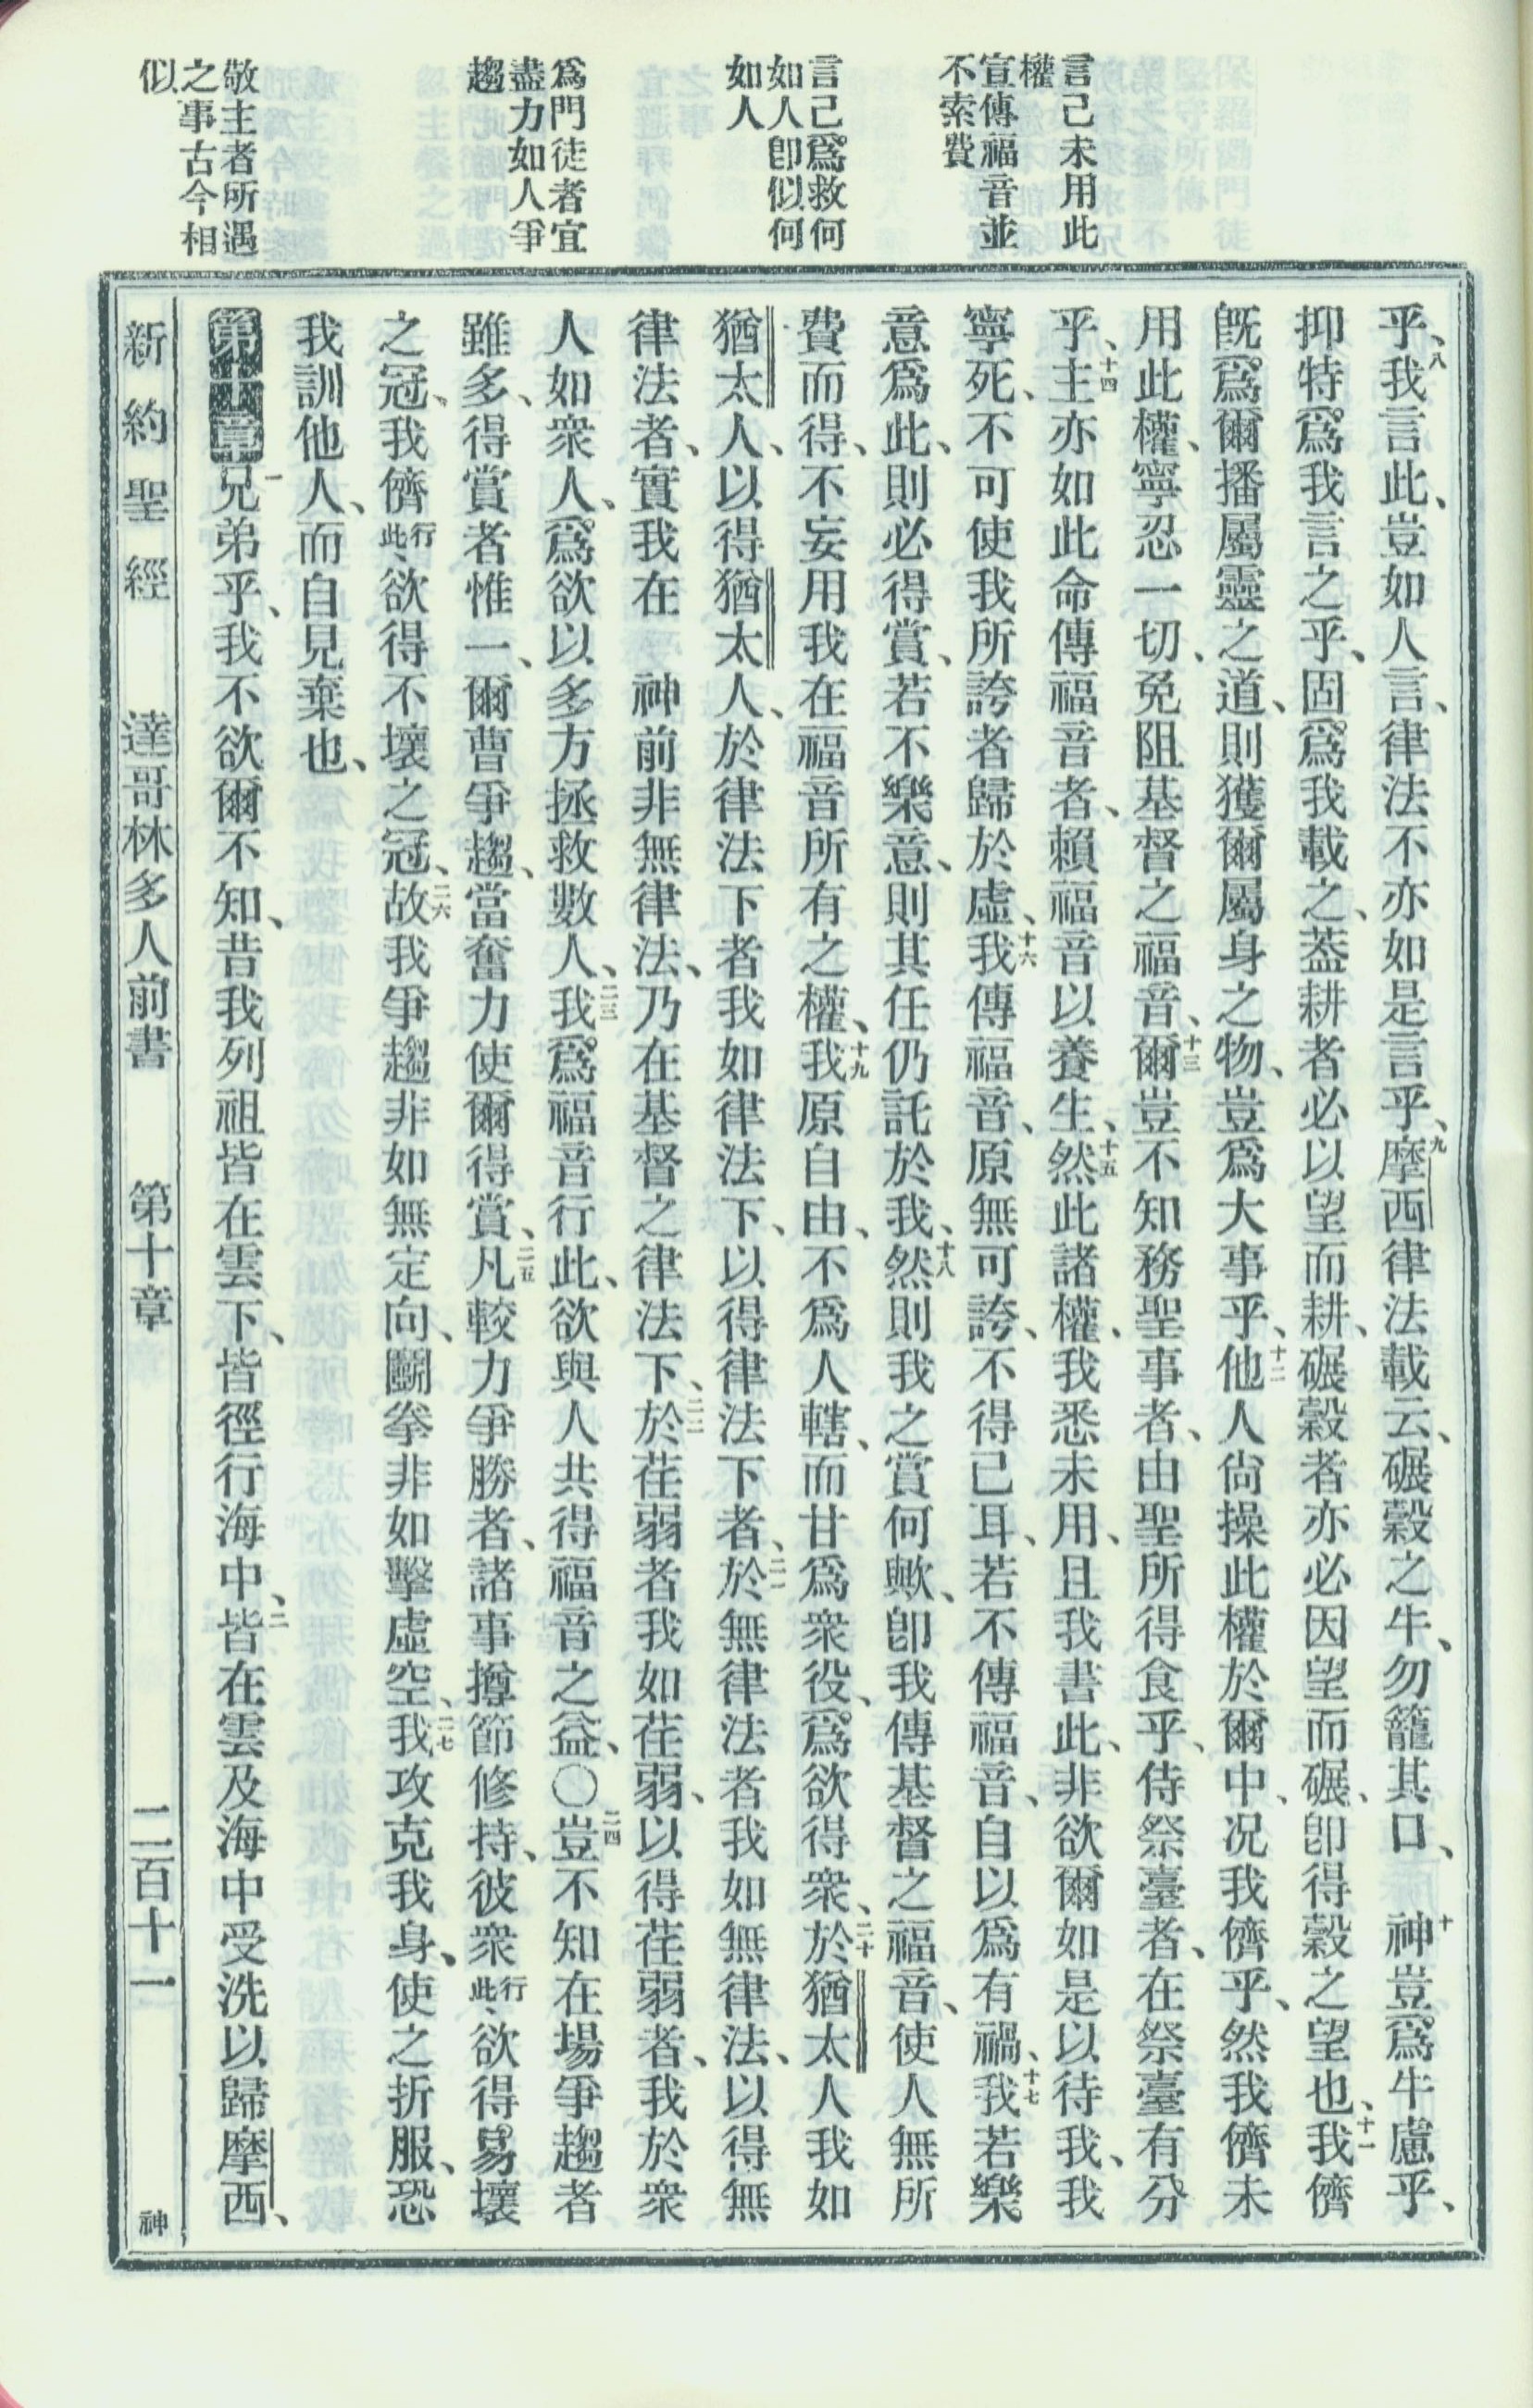 言己未用此
權
宣傳福音並
不索費
言己爲救何
如人卽似何
如人
爲門徒者宜
盡力如人爭
趨
敬主者所遇
之事古今相
似
乎、八我言此、豈如人言、律法不亦如是言乎、九摩西律法載云、碾穀之牛、勿籠其口、十神豈爲牛慮乎、
抑特爲我言之乎、固爲我載之、蓋耕者必以望而耕、碾穀者亦必因望而碾、卽得穀之望也、十一我儕
旣爲爾播屬靈之道、則獲爾屬身之物、豈爲大事乎、十二他人尙操此權於爾中、况我儕乎、然我儕未
用此權、寧忍一切、免阻基督之福音、十三爾豈不知務聖事者、由聖所得食乎、侍祭臺者、在祭臺有分
乎、十四主亦如此命傳福音者、賴福音以養生、十五然此諸權、我悉未用、且我書此、非欲爾如是以待我、我
寧死、不可使我所誇者歸於虛、十六我傳福音、原無可誇、不得已耳、若不傳福音、自以爲有禍、十七我若樂
意爲此、則必得賞、若不樂意、則其任仍託於我、十八然則我之賞何歟、卽我傳基督之福音、使人無所
費而得、不妄用我在福音所有之權、十九我原自由、不爲人轄、而甘爲衆役、爲欲得衆、二十於猶太人我如
猶太人、以得猶太人、於律法下者我如律法下、以得律法下者、二一於無律法者我如無律法、以得無
律法者、實我在 神前非無律法、乃在基督之律法下、二二於荏弱者我如荏弱、以得荏弱者、我於衆
人如衆人、爲欲以多方拯救數人、二三我爲福音行此、欲與人共得福音之益、〇二四豈不知在場爭趨者
雖多、得賞者惟一、爾曹爭趨、當奮力使爾得賞、二五凡較力爭勝者、諸事撙節修持、彼衆行此、欲得易壞
之冠、我儕行此、欲得不壞之冠、二六故我爭趨非如無定向、鬬拳非如擊虛空、二七我攻克我身、使之折服、恐
我訓他人、而自見棄也、
第十章一兄弟乎、我不欲爾不知、昔我列祖皆在雲下、皆徑行海中、二皆在雲及海中受洗以歸摩西、
新約聖經 達哥林多人前書 第十章 二百十一 神